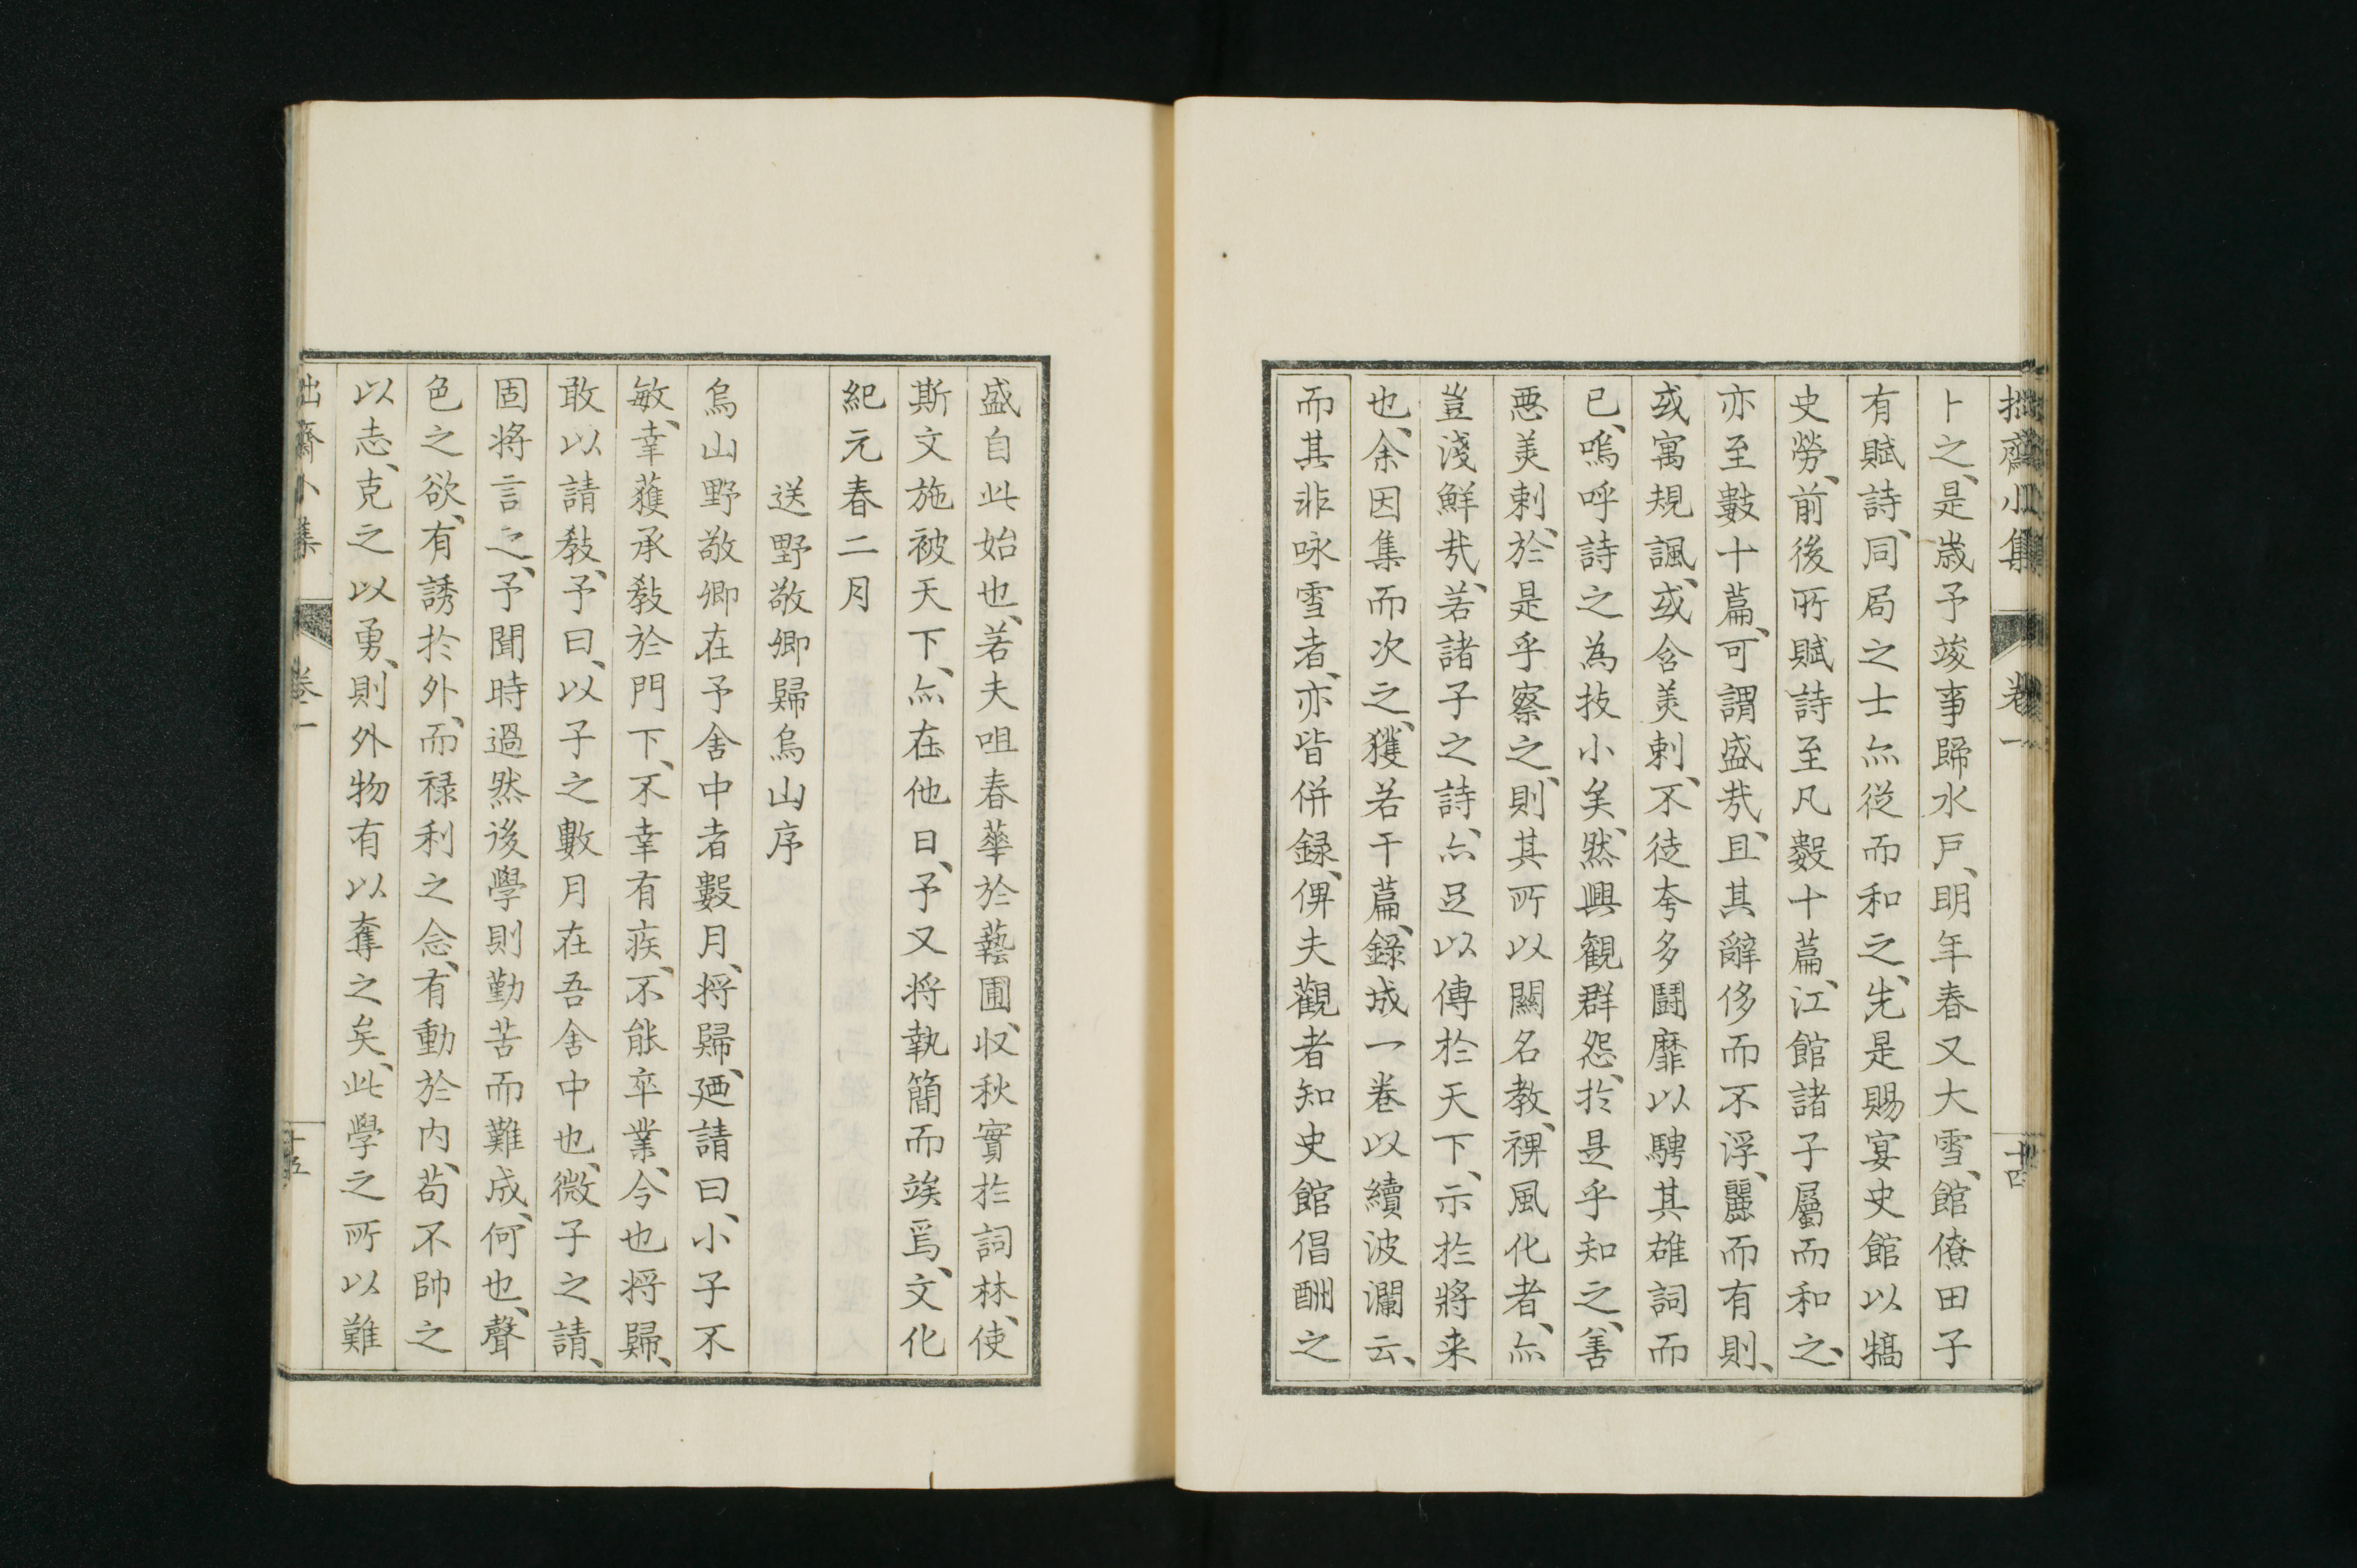 拙齋小集 卷一 十四
卜之、是歲予竣事歸水戶、明年春又大雪、館僚田子
有賦詩、同局之士亦從而和之、先是賜宴史館以犒
史勞、前後所賦詩至凡數十篇、江館諸子屬而和之、
亦至數十篇、可謂盛哉、且其辭侈而不浮、麗而有則、
或寓規諷、或含美刺、不徒夸多鬪靡以騁其雄詞而
已、嗚呼詩之為技小矣、然興觀群怨、於是乎知之、善
惡美刺、於是乎察之、則其所以關名教、裨風化者、亦
豈淺鮮哉、若諸子之詩、亦足以傳於天下、示於將来
也、余因集而次之、獲若干篇、錄成一卷以續波瀾云、
而其非咏雪者、亦皆併録、俾夫觀者知史館倡酬之
盛自此始也、若夫咀春華於藝圃、収秋實於詞林、使
斯文施被天下、亦在他日、予又将執簡而竢焉、文化
紀元春二月
送野敬卿歸烏山序
烏山野敬卿在予舍中者數月、将歸、廼請曰、小子不
敏、幸獲承教於門下、不幸有疾、不能卒業、今也将歸、
敢以請教、予曰、以子之數月在吾舍中也、微子之請、
固将言之、予聞時過然後學則勤苦而難成、何也、聲
色之欲、有誘於外、而禄利之念、有動於内、苟不帥之
以志、克之以勇、則外物有以奪之矣、此學之所以難
拙齋小集 卷一 十五